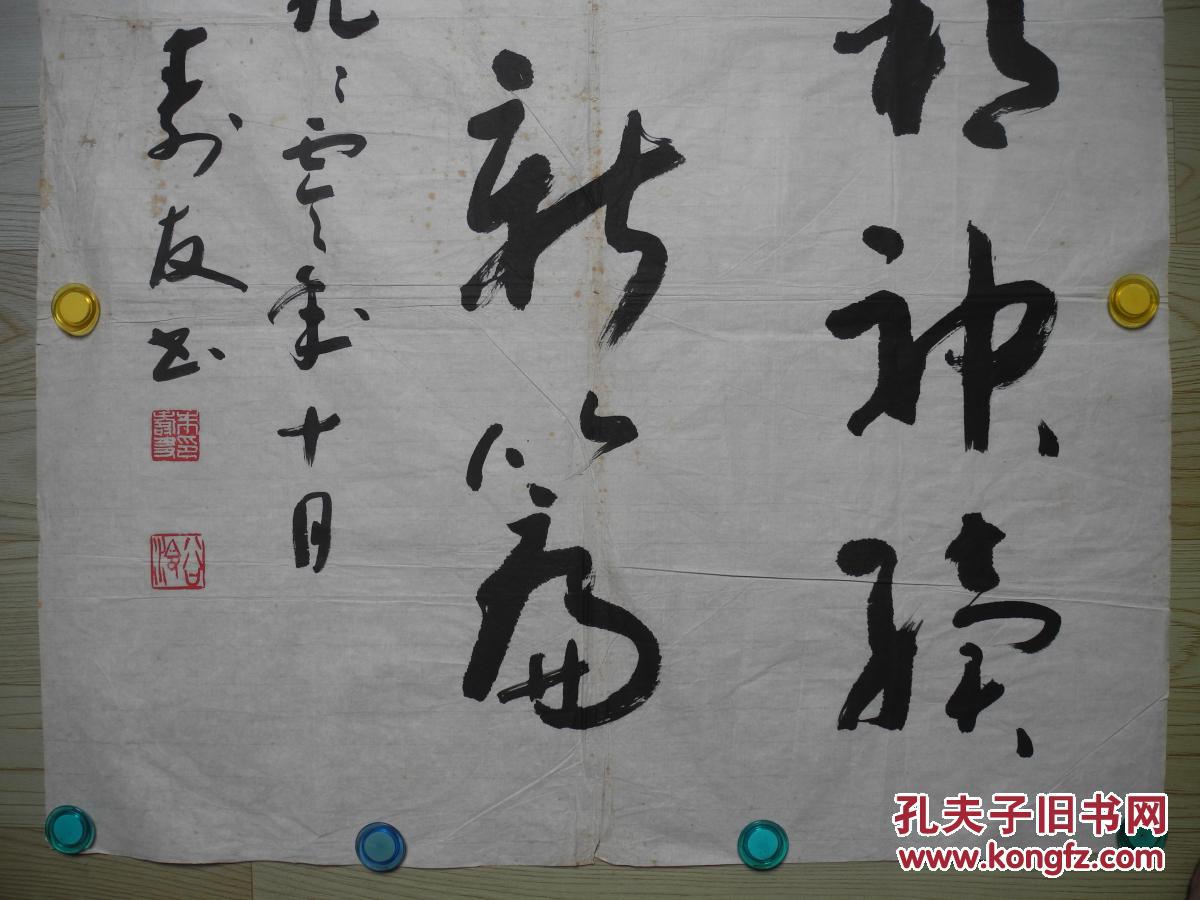 神續
新篇
九〻零年十月
寿友书
朱印壽友
孔夫子旧书网
www.kongfz.com